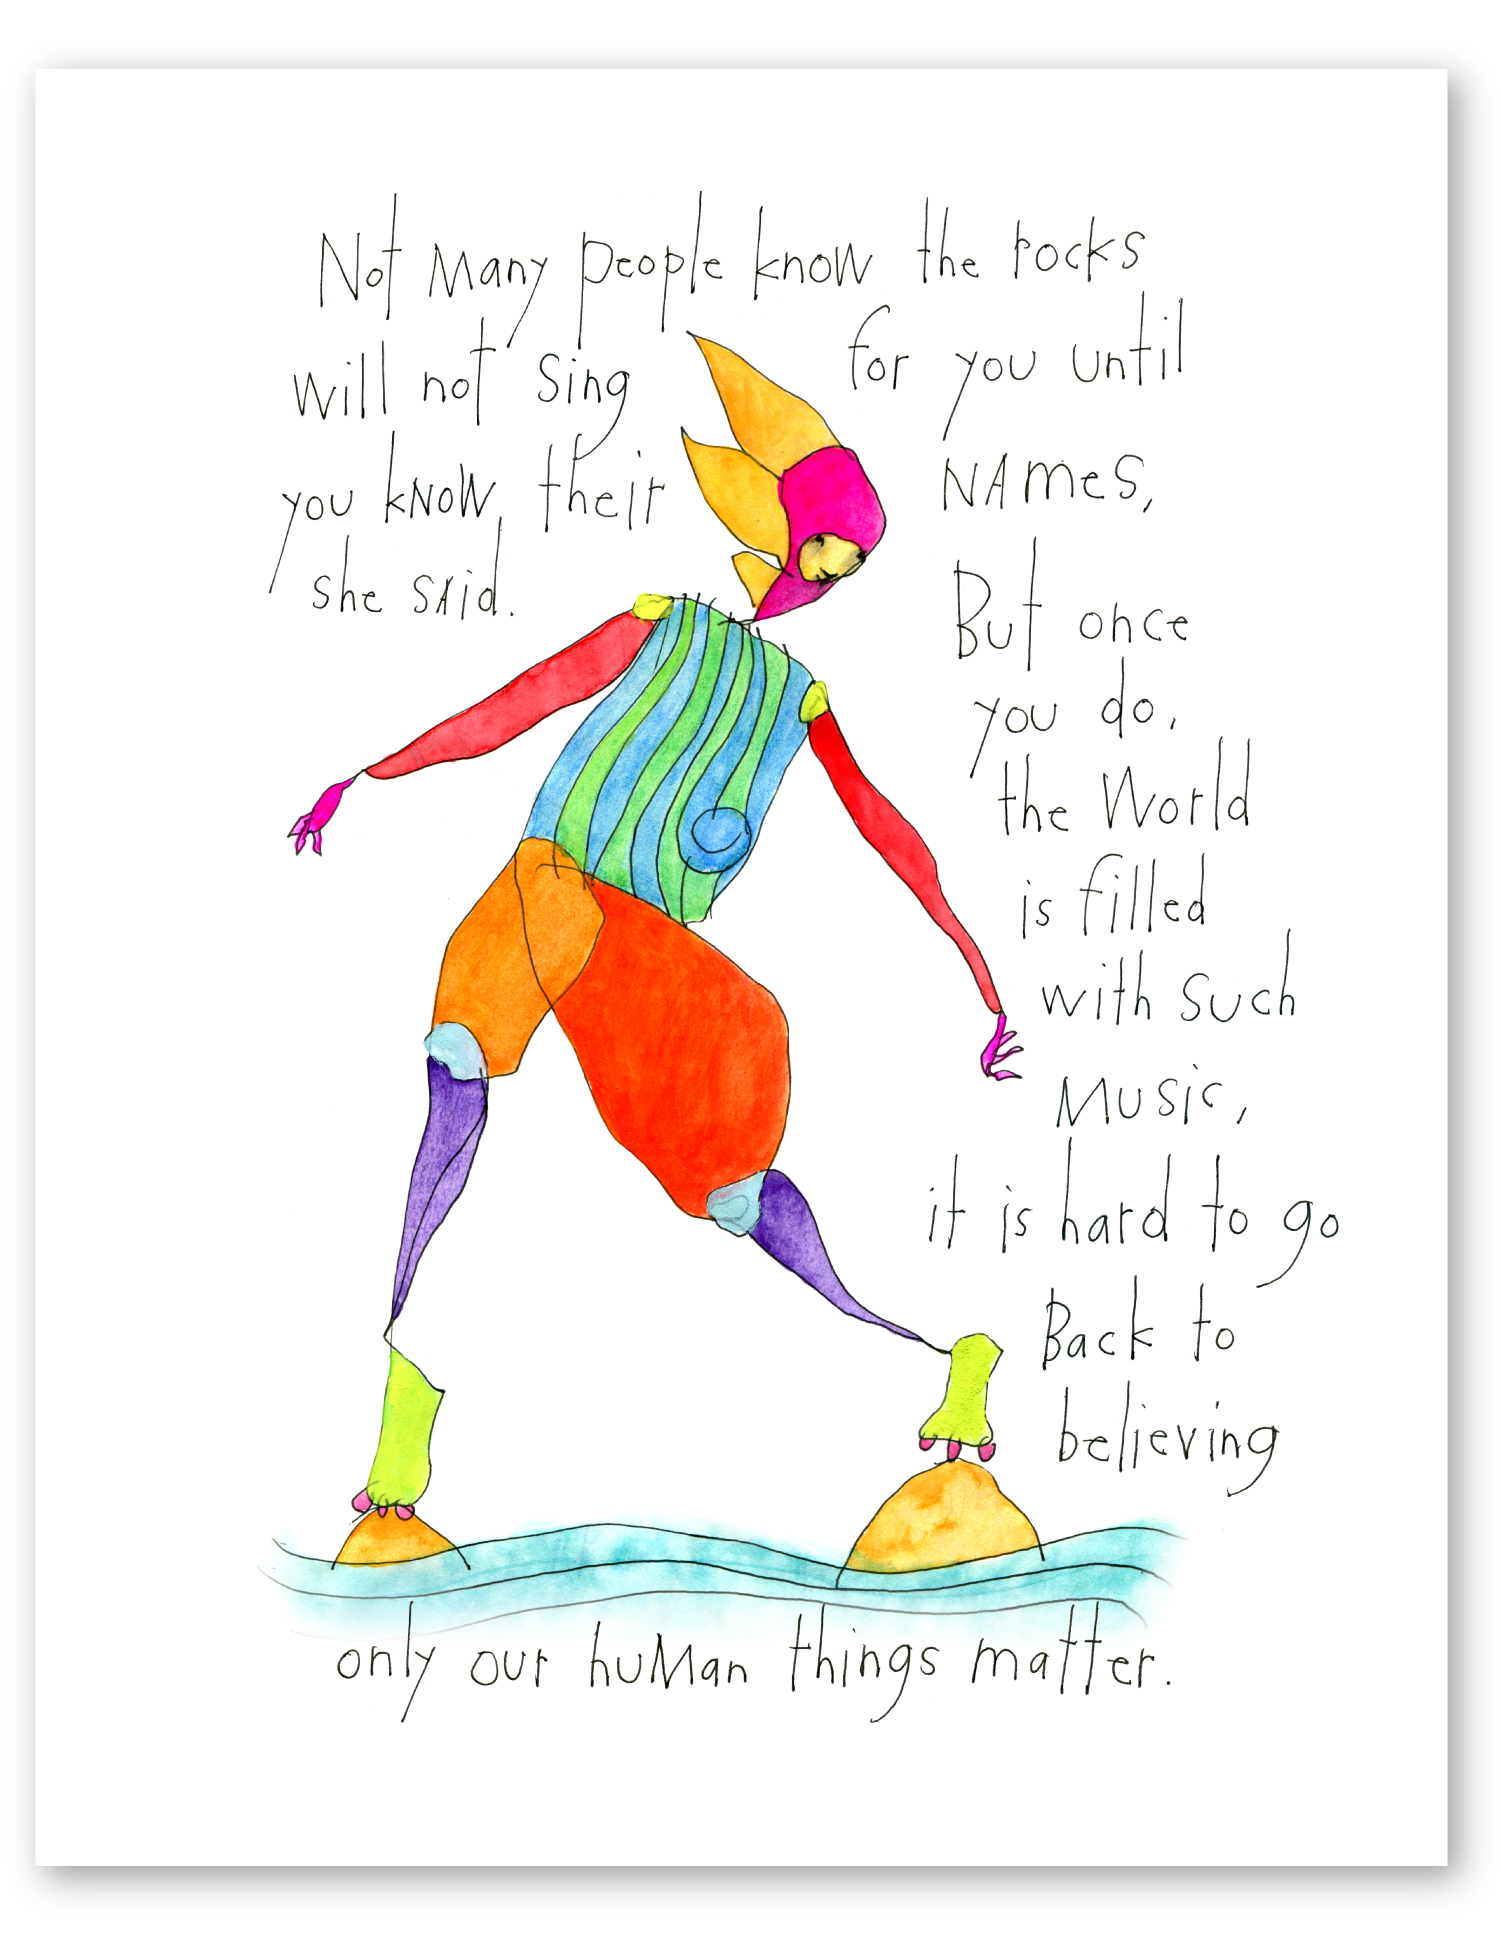 Not Many people know the rocks
will not sing for you until
you know their NAMes,
she said. But once
you do,
the World
is filled
with such
Music,
it is hard to go
Back to
believing
only our huMan things matter.